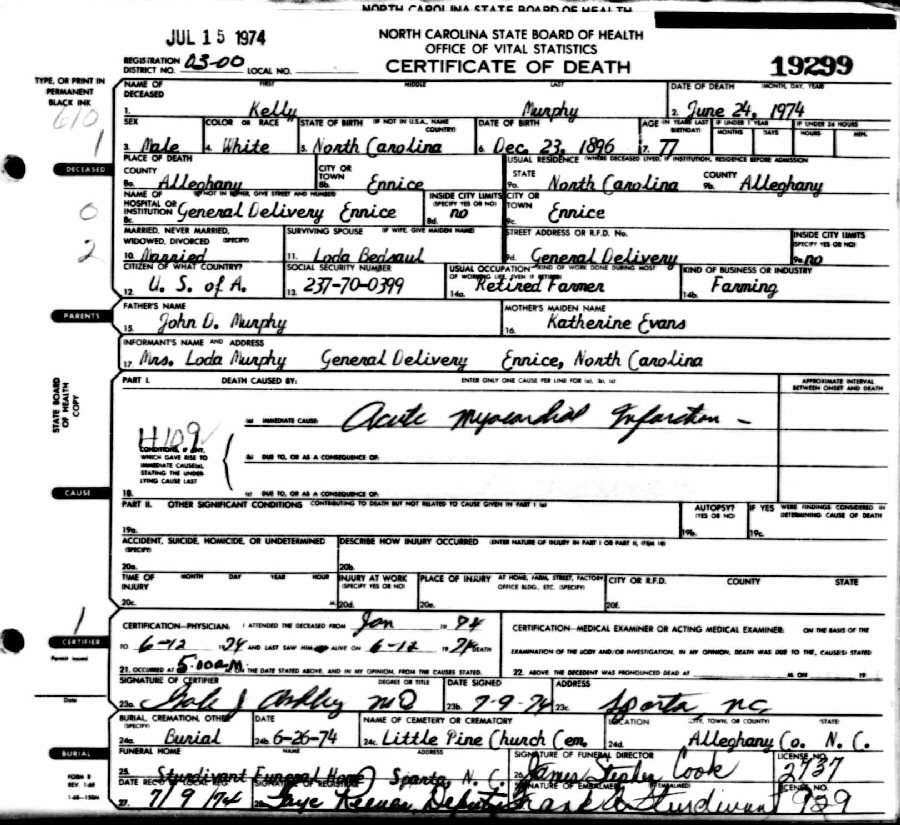 NORTH CAROLINA STATE BOARD OF HEALTH
JUL 15 1974
NORTH CAROLINA STATE BOARD OF HEALTH
OFFICE OF VITAL STATISTICS
CERTIFICATE OF DEATH
19299
REGISTRATION DISTRICT NO. 03-00 LOCAL NO.
TYPE, OR PRINT IN PERMANENT BLACK INK
NAME OF DECEASED FIRST MIDDLE LAST DATE OF DEATH (MONTH, DAY, YEAR)
1. Kelly Murphy 2. June 24, 1974
SEX COLOR OR RACE STATE OF BIRTH (IF NOT IN U.S.A., NAME COUNTRY) DATE OF BIRTH AGE (IN YEARS LAST BIRTHDAY) IF UNDER 1 YEAR MONTHS DAYS IF UNDER 24 HOURS HOURS MIN.
3. Male 4. White 5. North Carolina 6. Dec. 23, 1896 7. 77
DECEASED
PLACE OF DEATH USUAL RESIDENCE (WHERE DECEASED LIVED, IF INSTITUTION, RESIDENCE BEFORE ADMISSION)
COUNTY CITY OR TOWN STATE COUNTY
8a. Alleghany 8b. Ennice 9a. North Carolina 9b. Alleghany
NAME OF HOSPITAL OR INSTITUTION (IF NOT IN EITHER, GIVE STREET AND NUMBER) INSIDE CITY LIMITS (SPECIFY YES OR NO) CITY OR TOWN
8c. General Delivery Ennice 8d. no 9c. Ennice
MARRIED, NEVER MARRIED, WIDOWED, DIVORCED (SPECIFY) SURVIVING SPOUSE (IF WIFE, GIVE MAIDEN NAME) STREET ADDRESS OR R.F.D. No. INSIDE CITY LIMITS (SPECIFY YES OR NO)
10. Married 11. Loda Bedsaul 9d. General Delivery 9e. no
CITIZEN OF WHAT COUNTRY? SOCIAL SECURITY NUMBER USUAL OCCUPATION (KIND OF WORK DONE DURING MOST OF WORKING LIFE, EVEN IF RETIRED) KIND OF BUSINESS OR INDUSTRY
12. U. S. of A. 13. 237-70-0399 14a. Retired Farmer 14b. Farming
PARENTS
FATHER'S NAME MOTHER'S MAIDEN NAME
15. John D. Murphy 16. Katherine Evans
INFORMANT'S NAME AND ADDRESS
17. Mrs. Loda Murphy General Delivery Ennice, North Carolina
STATE BOARD OF HEALTH COPY
PART I. DEATH CAUSED BY: ENTER ONLY ONE CAUSE PER LINE FOR (a), (b), (c) APPROXIMATE INTERVAL BETWEEN ONSET AND DEATH
(a) IMMEDIATE CAUSE Acute Myocardial Infarction -
4109
CONDITIONS, IF ANY, WHICH GAVE RISE TO IMMEDIATE CAUSE(a), STATING THE UNDERLYING CAUSE LAST
(b) DUE TO, OR AS A CONSEQUENCE OF:
CAUSE
18. (c) DUE TO, OR AS A CONSEQUENCE OF:
PART II. OTHER SIGNIFICANT CONDITIONS CONTRIBUTING TO DEATH BUT NOT RELATED TO CAUSE GIVEN IN PART I (a) AUTOPSY? (YES OR NO) IF YES WERE FINDINGS CONSIDERED IN DETERMINING CAUSE OF DEATH
19a. 19b. 19c.
ACCIDENT, SUICIDE, HOMICIDE, OR UNDETERMINED (SPECIFY) DESCRIBE HOW INJURY OCCURRED (ENTER NATURE OF INJURY IN PART I OR PART II, ITEM 18)
20a. 20b.
TIME OF INJURY MONTH DAY YEAR HOUR INJURY AT WORK (SPECIFY YES OR NO) PLACE OF INJURY AT HOME, FARM, STREET, FACTORY OFFICE BLDG., ETC. (SPECIFY) CITY OR R.F.D. COUNTY STATE
20c. M. 20d. 20e. 20f.
CERTIFIER
Permit issued
Date
CERTIFICATION—PHYSICIAN: I ATTENDED THE DECEASED FROM Jan 1974
TO 6-12 1974 AND LAST SAW HIM ALIVE ON 6-12 1974 DEATH
21. OCCURRED AT 5:00 a.M. ON THE DATE STATED ABOVE, AND IN MY OPINION, FROM THE CAUSES STATED.
CERTIFICATION—MEDICAL EXAMINER OR ACTING MEDICAL EXAMINER: ON THE BASIS OF THE
EXAMINATION OF THE BODY AND/OR INVESTIGATION, IN MY OPINION, DEATH WAS DUE TO THE, CAUSE(S) STATED
22. ABOVE. THE DECEDENT WAS PRONOUNCED DEAD AT M. ON 19
SIGNATURE OF CERTIFIER DEGREE OR TITLE DATE SIGNED ADDRESS
23a. J Ashley MD 23b. 7-9-74 23c. Sparta, NC
BURIAL, CREMATION, OTHER (SPECIFY) DATE NAME OF CEMETERY OR CREMATORY LOCATION (CITY, TOWN, OR COUNTY) STATE
24a. Burial 24b. 6-26-74 24c. Little Pine Church Cem. 24d. Alleghany Co. N. C.
BURIAL
FUNERAL HOME NAME ADDRESS SIGNATURE OF FUNERAL DIRECTOR LICENSE NO.
25. Sturdivant Funeral Home Sparta, N. C. 26. James Stephen Cook 2737
FORM 8
REV. 1-68
DATE REC'D SIGNATURE OF REGISTRAR SIGNATURE OF EMBALMER LICENSE NO.
27. 7/9/74 28. Faye Reeves, Deputy Frank Sturdivant 929